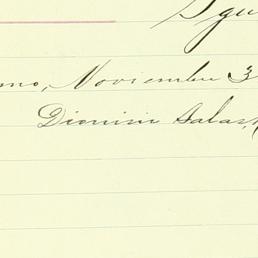 mo, Noviembre 3
Dionisio Salas,